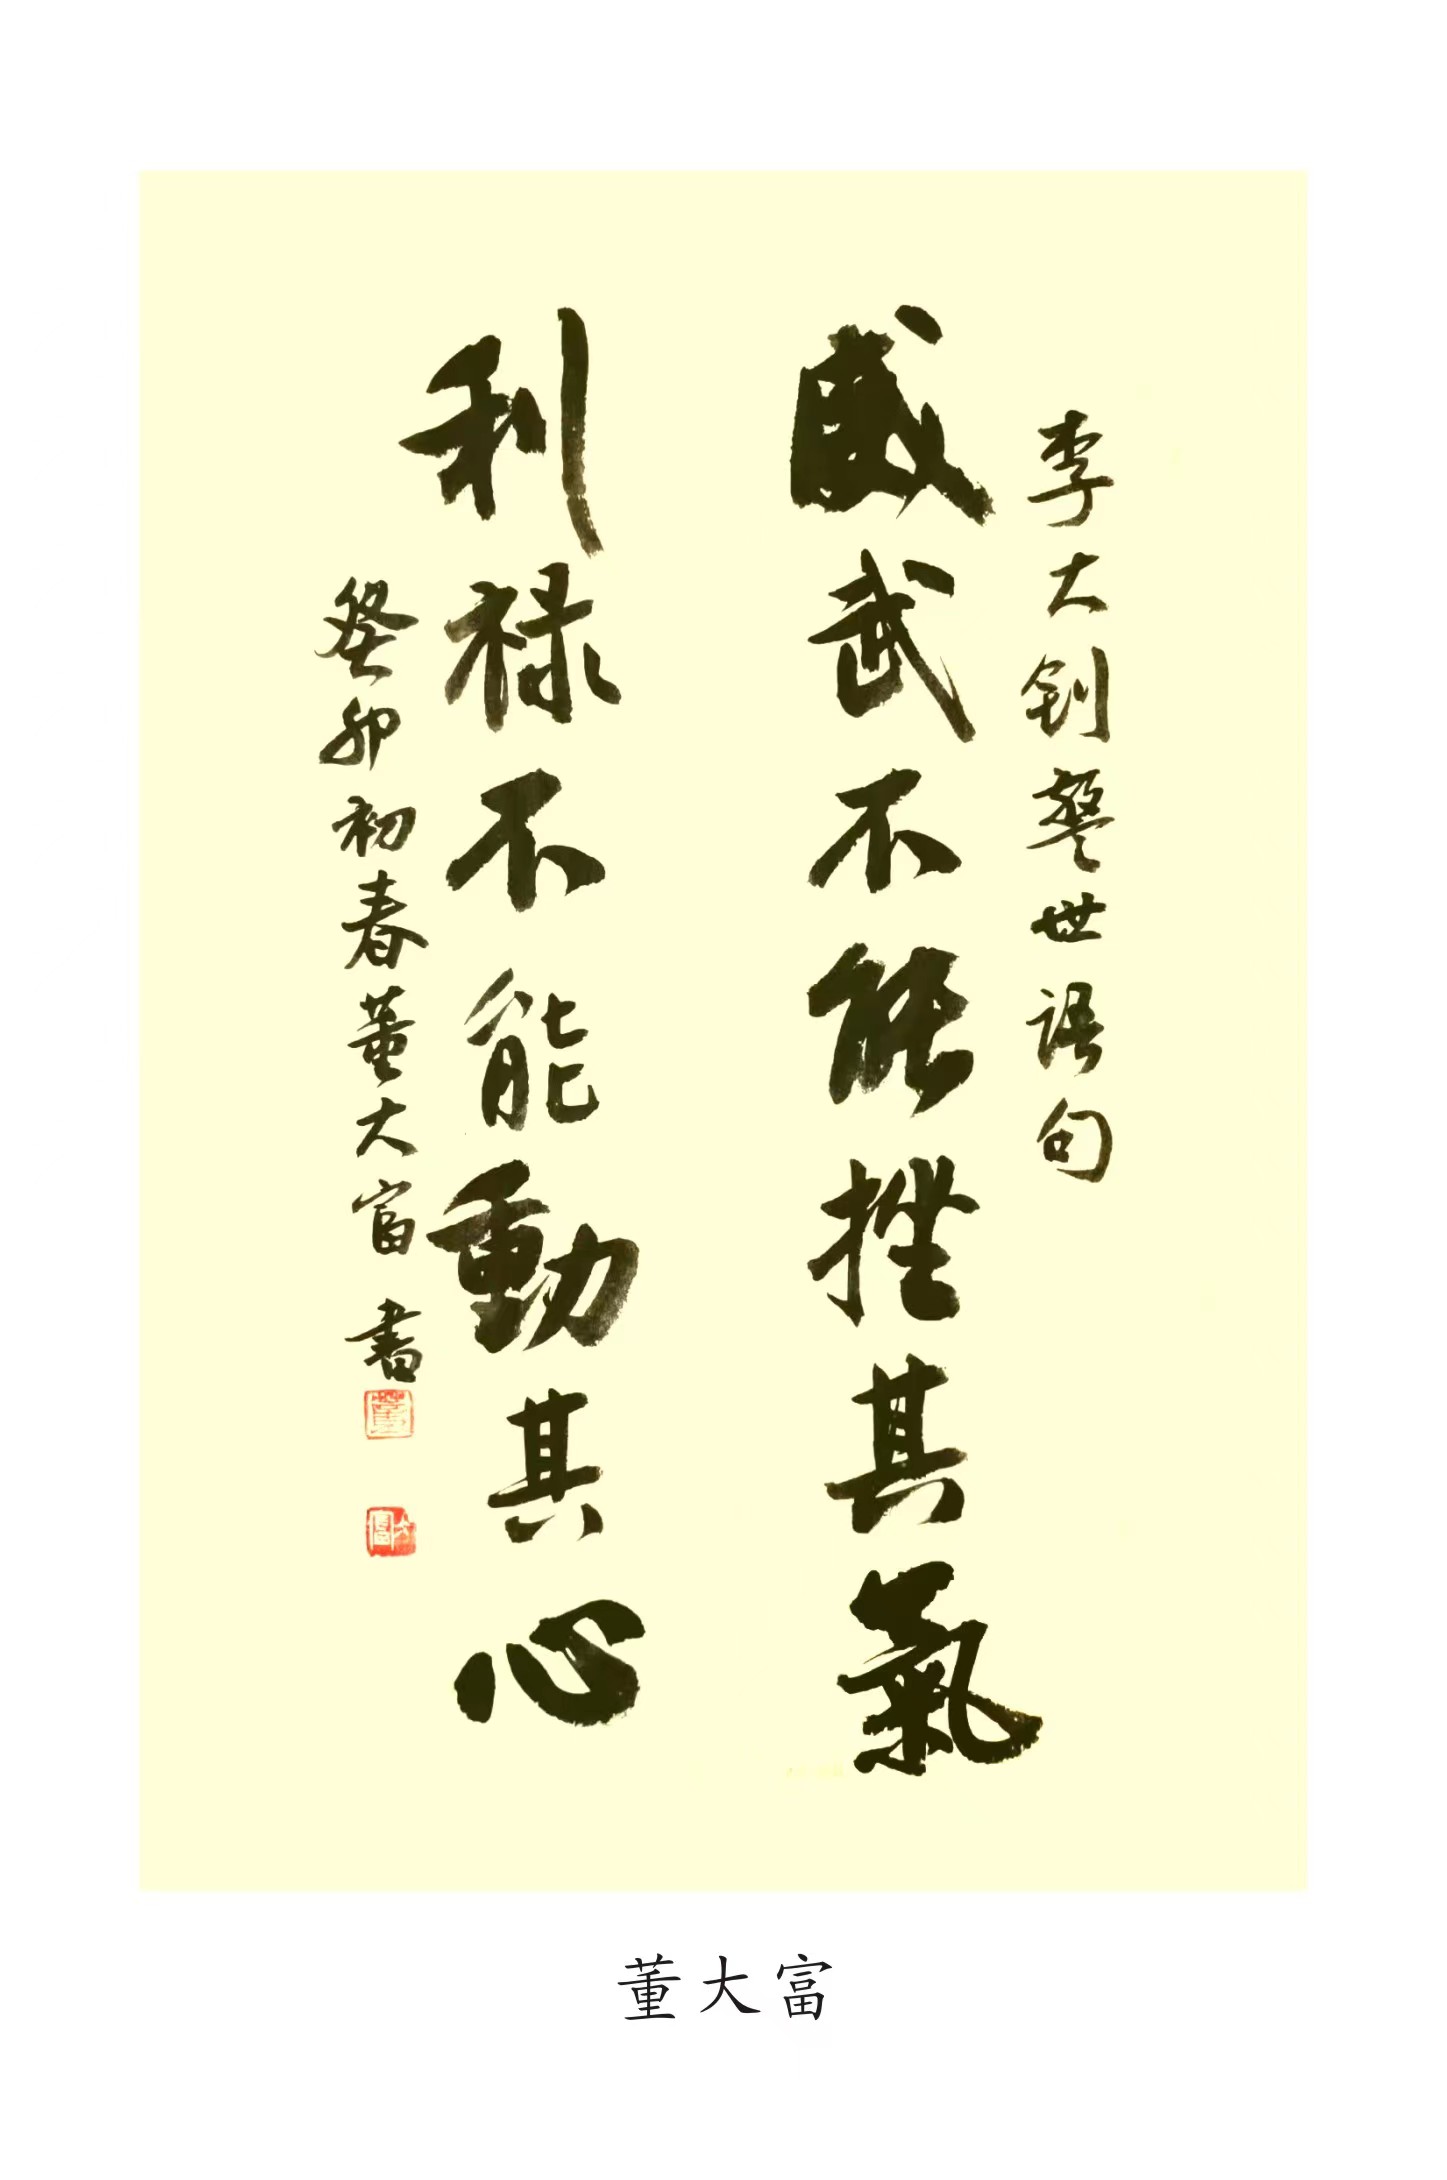 李大钊警世语句
威武不能挫其氣
利禄不能動其心
癸卯初春董大富書
董
大富
董大富